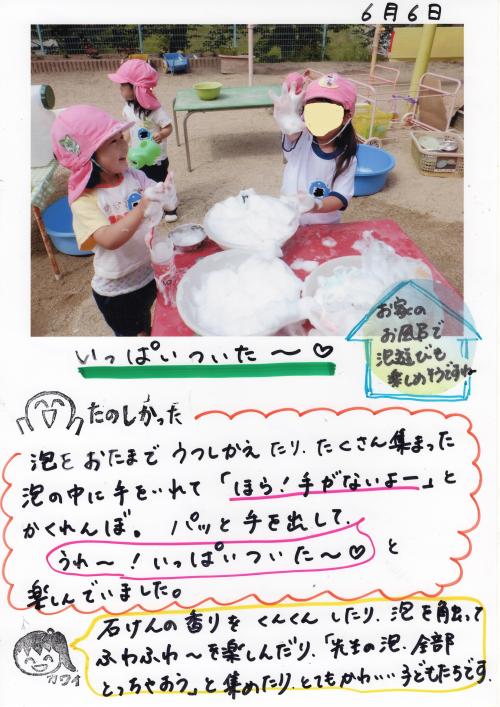 6月6日
いっぱいついた〜♡
お家の
お風呂で
泡遊びも
楽しめそうですね
たのしかった
泡をおたまでうつしかえたり、たくさん集まった
泡の中に手をいれて「ほら!手がないよー」と
かくれんぼ。パッと手を出して、
うわ〜!いっぱいついた〜♡と
楽しんでいました。
石けんの香りをくんくんしたり、泡を触って
ふわふわ〜を楽しんだり、「先生の泡、全部
とっちゃおう」と集めたり、とてもかわいい子どもたちです。
カワイ